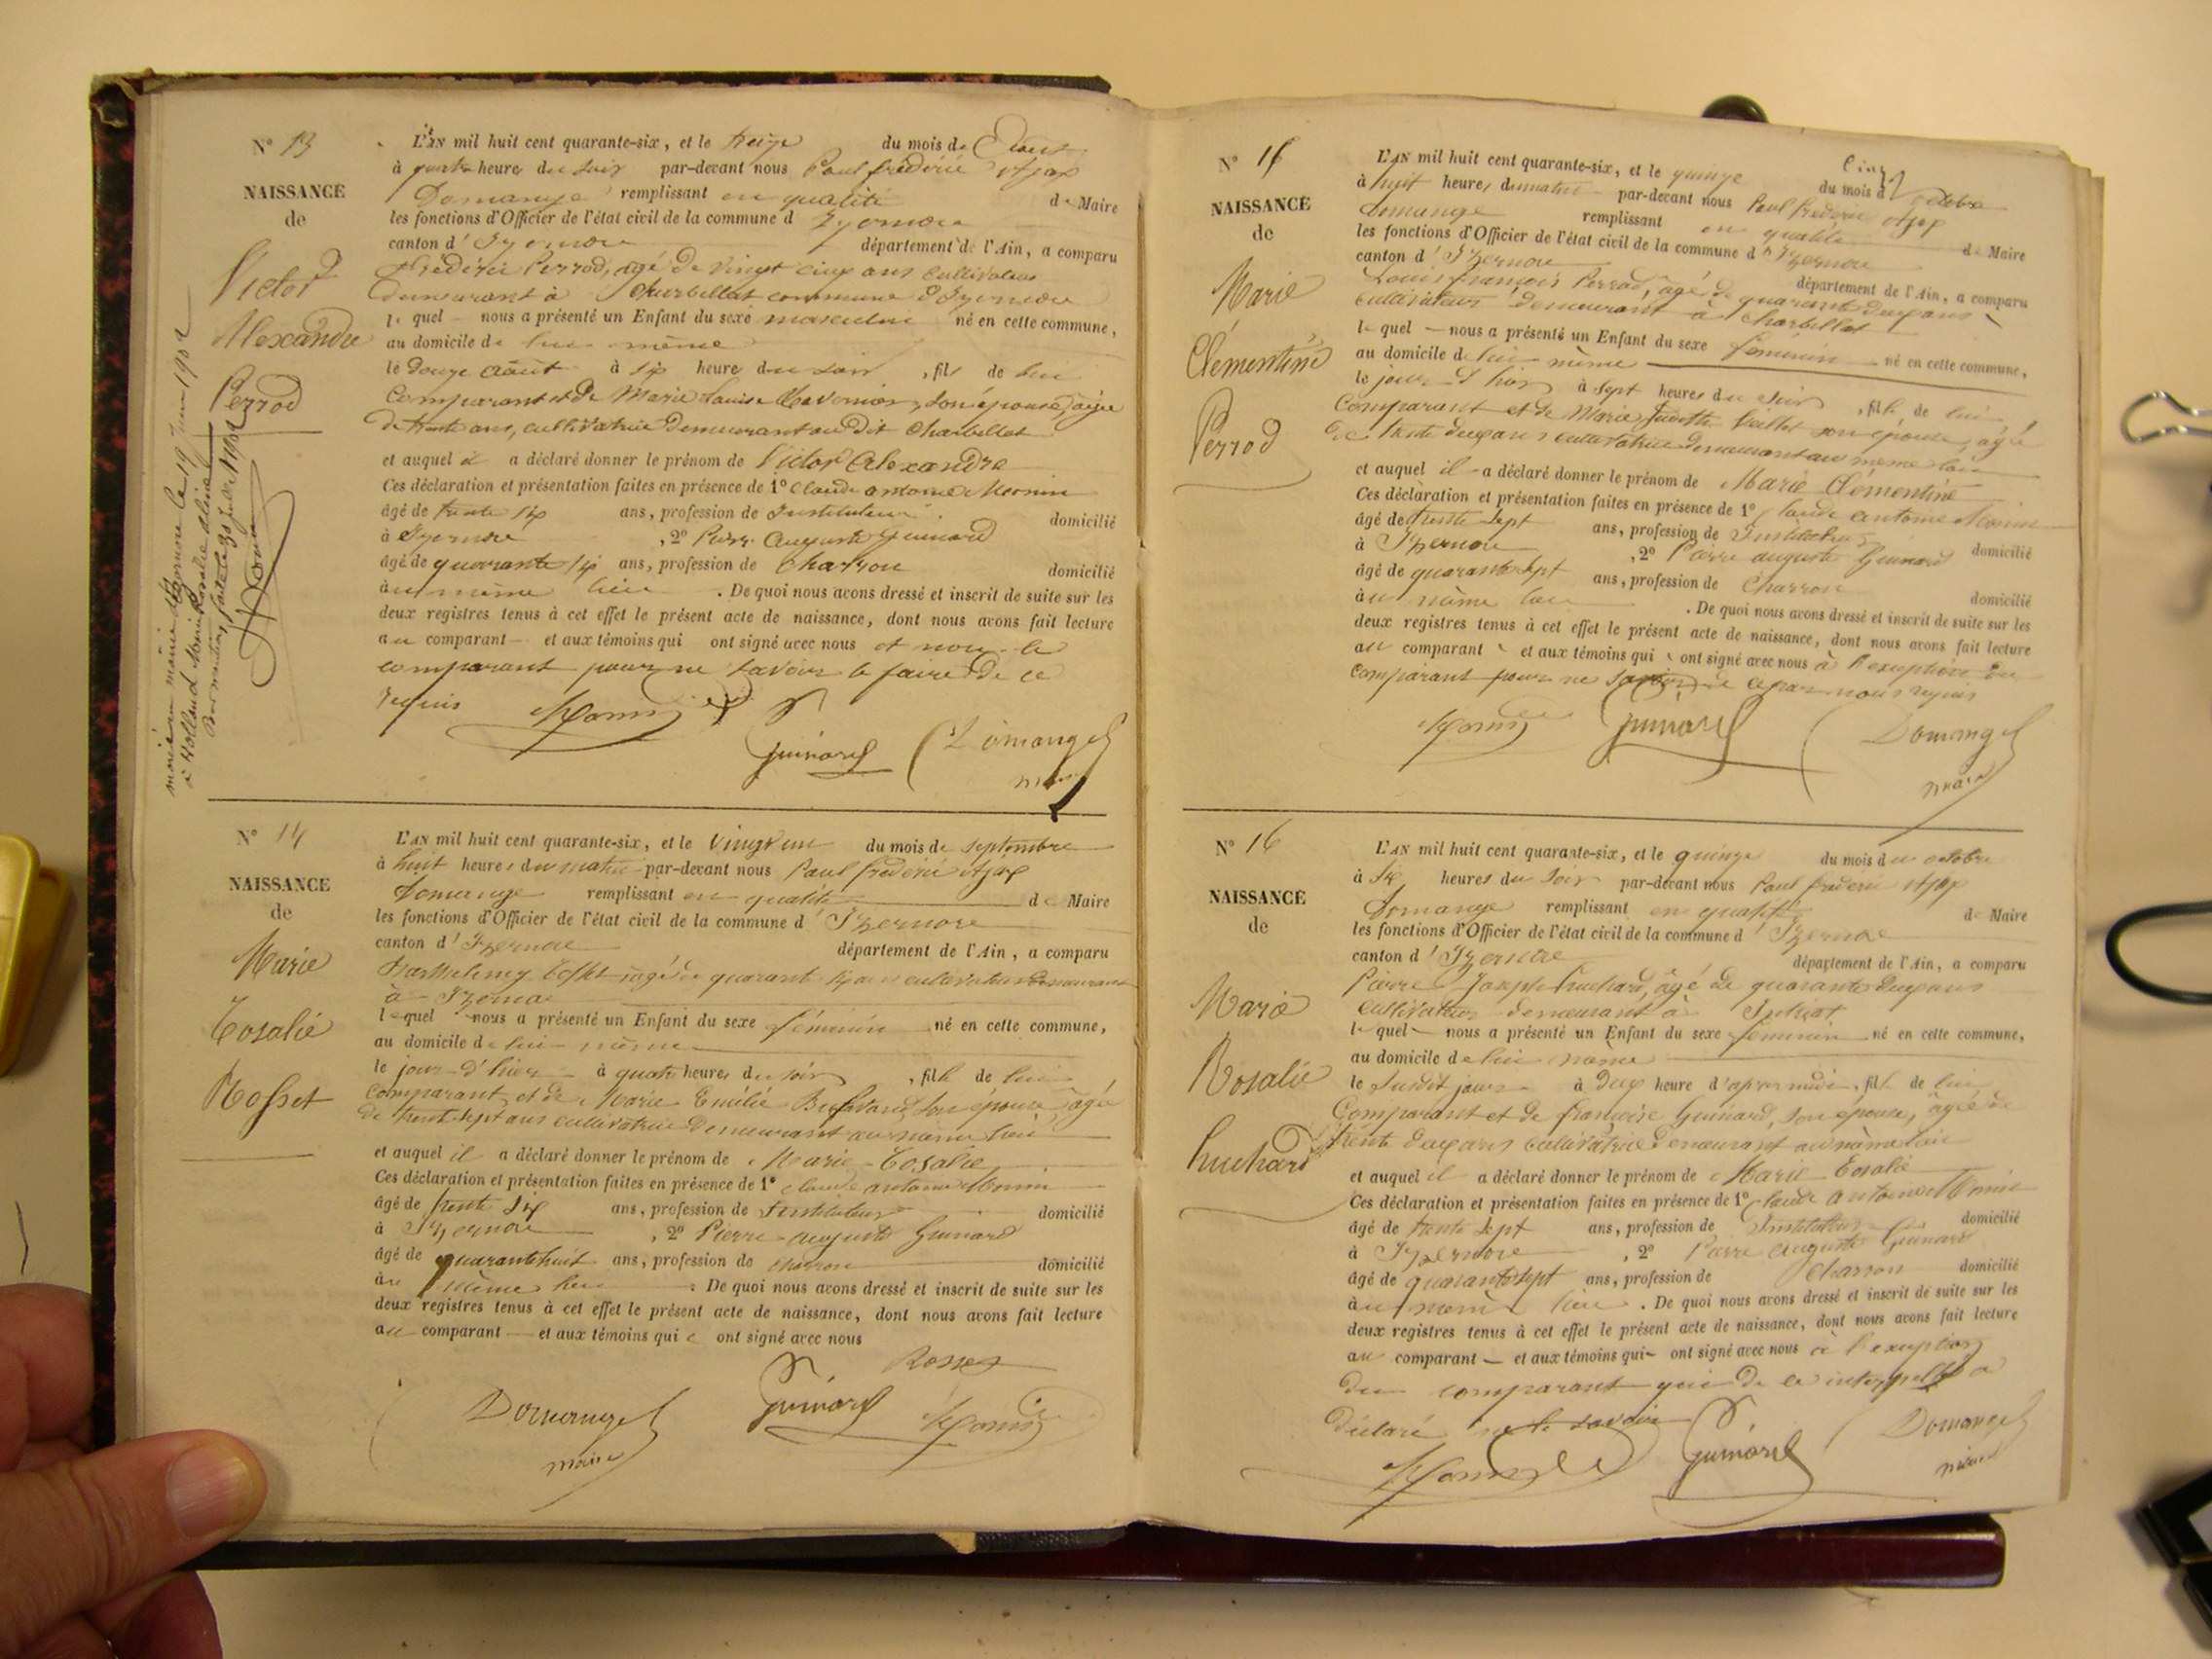 N° 13
NAISSANCE
de
Victor
Alexandre
Perrod
L'AN mil huit cent quarante-six, et le treize du mois d'août
à quatre heures du soir par-devant nous Paul frédéric Ajax
Domange remplissant en qualité de Maire
les fonctions d'Officier de l'état civil de la commune d'Izernore
canton d'Izernore département de l'Ain, a comparu
frédéric Perrod, agé de vingt cinq ans cultivateur
demeurant à Charbillat commune d'Izernore
lequel nous a présenté un Enfant du sexe masculin né en cette commune,
au domicile de lui même
le douze août à six heure du soir, fils de lui
Comparant et de Marie Louise son épouse, agée
de trente ans, cultivatrice demeurant au dit Charbillat
et auquel il a déclaré donner le prénom de Victor Alexandre
Ces déclaration et présentation faites en présence de 1° Claude antoine Monin
âgé de trente six ans, profession de Instituteur domicilié
à Izernore, 2° Pierre Auguste Guinard
âgé de quarante six ans, profession de Charron domicilié
au même lieu. De quoi nous avons dressé et inscrit de suite sur les
deux registres tenus à cet effet le présent acte de naissance, dont nous avons fait lecture
au comparant et aux témoins qui ont signé avec nous et non le
comparant pour ne savoir le faire de ce
requis
Monin
Guinard
Domange
maire
N° 14
NAISSANCE
de
Marie
Rosalie
Rosset
L'AN mil huit cent quarante-six, et le vingt un du mois de septembre
à huit heures du matin par-devant nous Paul frédéric Ajax
Domange remplissant en qualité de Maire
les fonctions d'Officier de l'état civil de la commune d'Izernore
canton d'Izernore département de l'Ain, a comparu
Barthelemy Rosset agé de quarante six ans cultivateur demeurant
à Izernore
lequel nous a présenté un Enfant du sexe féminin né en cette commune,
au domicile de lui même
le jour d'hier à quatre heures du soir, fille de lui
comparant et de Marie Emélie son épouse, agé
de trente sept ans cultivatrice demeurant au même lieu
et auquel il a déclaré donner le prénom de Marie Rosalie
Ces déclaration et présentation faites en présence de 1° Claude antoine Monin
âgé de trente six ans, profession de Instituteur domicilié
à Izernore, 2° Pierre auguste Guinard
âgé de quarante huit ans, profession de charron domicilié
au même lieu. De quoi nous avons dressé et inscrit de suite sur les
deux registres tenus à cet effet le présent acte de naissance, dont nous avons fait lecture
au comparant et aux témoins qui ont signé avec nous
Rosset
Domange
maire
Guinard
Monin
N° 15
NAISSANCE
de
Marie
Clémentine
Perrod
L'AN mil huit cent quarante-six, et le quinze du mois d'octobre
à huit heures du matin par-devant nous Paul frédéric Ajax
Domange remplissant en qualité de Maire
les fonctions d'Officier de l'état civil de la commune d'Izernore
canton d'Izernore département de l'Ain, a comparu
Louis françois Perrod, agé de quarante deux ans
cultivateur demeurant à Charbillat
lequel nous a présenté un Enfant du sexe féminin né en cette commune,
au domicile de lui même
le jour d'hier à sept heures du soir, fille de lui
Comparant et de Marie Judith son épouse, agé
de trente deux ans cultivatrice demeurant au même lieu
et auquel il a déclaré donner le prénom de Marie Clémentine
Ces déclaration et présentation faites en présence de 1° Claude antoine Monin
âgé de trente sept ans, profession de Instituteur domicilié
à Izernore, 2° Pierre auguste Guinard
âgé de quarante sept ans, profession de Charron domicilié
au même lieu. De quoi nous avons dressé et inscrit de suite sur les
deux registres tenus à cet effet le présent acte de naissance, dont nous avons fait lecture
au comparant et aux témoins qui ont signé avec nous à l'exception du
comparant pour ne savoir de ce par nous requis
Monin
Guinard
Domange
maire
N° 16
NAISSANCE
de
Marie
Rosalie
Huchard
L'AN mil huit cent quarante-six, et le quinze du mois d'octobre
à six heures du soir par-devant nous Paul frédéric Ajax
Domange remplissant en qualité de Maire
les fonctions d'Officier de l'état civil de la commune d'Izernore
canton d'Izernore département de l'Ain, a comparu
Pierre Joseph Huchard, agé de quarante deux ans
cultivateur demeurant à Intriat
lequel nous a présenté un Enfant du sexe féminin né en cette commune,
au domicile de lui même
le susdit jour à deux heure d'après midi, fille de lui
Comparant et de françoise Guinard, son épouse, agée de
trente deux ans cultivatrice demeurant au même lieu
et auquel il a déclaré donner le prénom de Marie Rosalie
Ces déclaration et présentation faites en présence de 1° Claude antoine Monin
âgé de trente sept ans, profession de Instituteur domicilié
à Izernore, 2° Pierre auguste Guinard
âgé de quarante sept ans, profession de Charron domicilié
au même lieu. De quoi nous avons dressé et inscrit de suite sur les
deux registres tenus à cet effet le présent acte de naissance, dont nous avons fait lecture
au comparant et aux témoins qui ont signé avec nous à l'exception
du comparant qui de ce interpellé a
déclaré ne le savoir
Monin
Guinard
Domange
maire